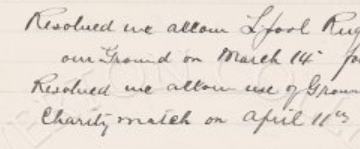 Resolved we allow L'pool Rug
our Ground on March 14th fo
Resolved we allow use of Groun
Charity match on April 11th